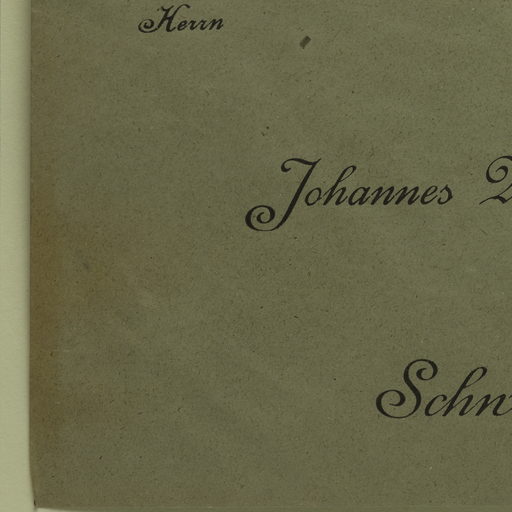 Herrn
Johannes
Schn